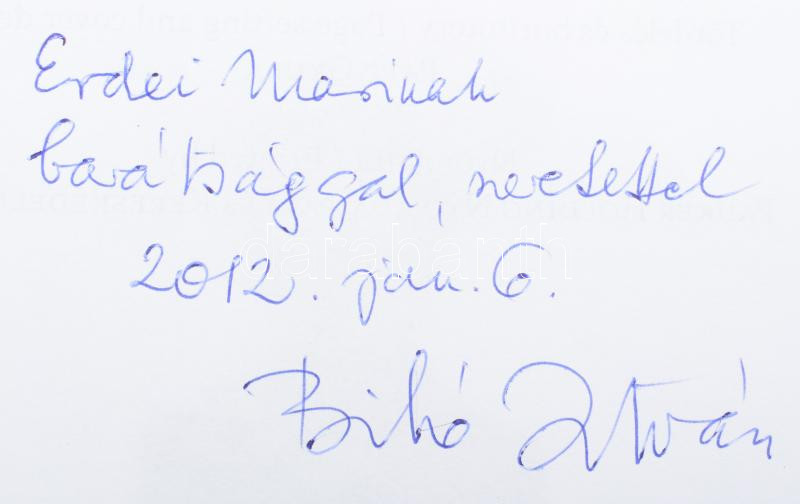 Erdei Marinak
barátsággal, szeretettel
2012. jan. 6.
Bibó István
darabanth